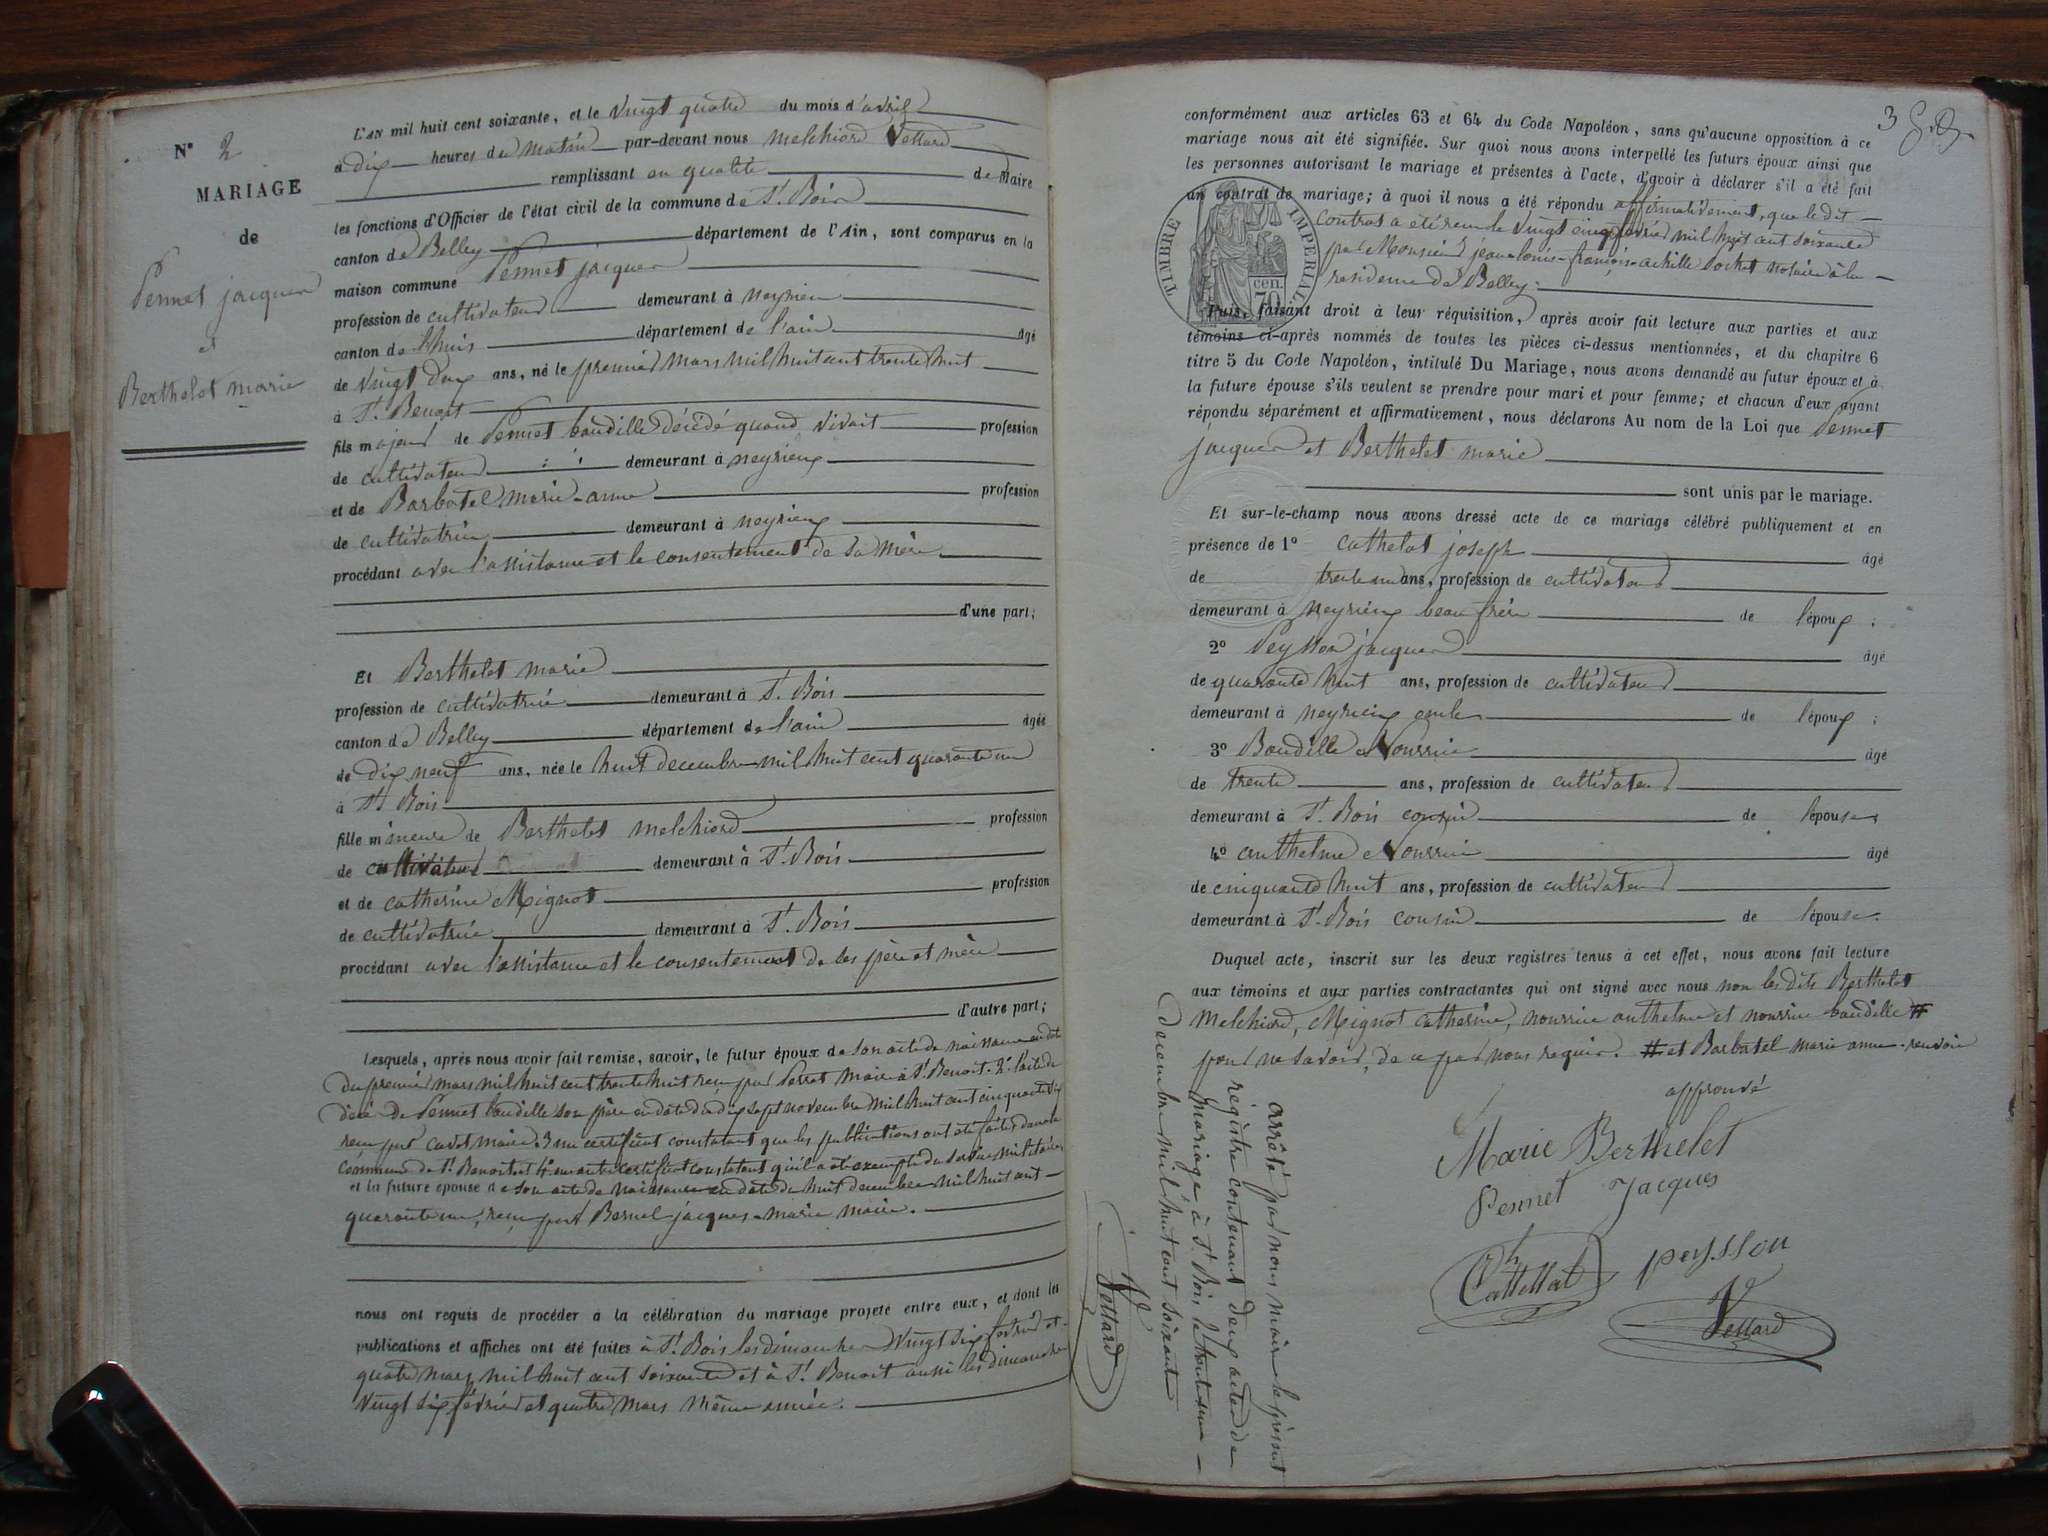 N° 2
MARIAGE
de
Pennet jacques
et
Berthelet marie
L'AN mil huit cent soixante, et le Vingt quatre du mois d'avril
à dix heures du matin par-devant nous melchiord Vettard
remplissant en qualité de Maire
les fonctions d'Officier de l'état civil de la commune de St. Bois
canton de Belley département de l'Ain, sont comparus en la
maison commune Pennet jacques
profession de cultivateur demeurant à neyrieu
canton de lhuis département de l'ain âgé
de vingt deux ans, né le premier mars mil huit cent trente huit
à St. Benoit
fils majeur de Pennet baudille décédé quand vivait profession
de cultivateur demeurant à neyrieux
et de Barbatel marie-anne profession
de cultivatrice demeurant à neyrieux
procédant avec l'assistance et le consentement de sa mère
d'une part;
Et Berthelet marie
profession de cultivatrice demeurant à St. Bois
canton de Belley département de l'ain âgée
de dix neuf ans, née le huit decembre mil huit cent quarante un
à St. Bois
fille mineure de Berthelet melchiord profession
de cultivateur demeurant à St. Bois
et de catherine Mignot profession
de cultivatrice demeurant à St. Bois
procédant avec l'assistance et le consentement de ses père et mère
d'autre part;
Lesquels, après nous avoir fait remise, savoir, le futur époux de son acte de naissance en date
du premier mars mil huit cent trente huit reçu par Perret Maire à St. Benoit. 2° l'acte de
décè de Pennet baudille son père en date du dix sept novembre mil huit cent cinquante dix
reçu par maire. 3 un certificat constatant que les publications ont été faites dans la
commune de St. Benoit et 4° un autre certificat constatant qu'il a été exempté du service militaire,
et la future épouse de son acte de naissance en date du huit decembre mil huit cent
quarante un, reçu par Bernel jacques-marie maire.
nous ont requis de procéder à la célébration du mariage projeté entre eux, et dont les
publications et affiches ont été faites à St. Bois les dimanches vingt six fevrier et
quatre mars mil huit cent soixante et à St. Benoit aussi les dimanches
vingt six février et quatre mars même année.
3
conformément aux articles 63 et 64 du Code Napoléon, sans qu'aucune opposition à ce
mariage nous ait été signifiée. Sur quoi nous avons interpellé les futurs époux ainsi que
les personnes autorisant le mariage et présentes à l'acte, d'avoir à déclarer s'il a été fait
un contrat de mariage; à quoi il nous a été répondu affirmativement, que le dit
contrat a été reçu le vingt cinq fevrier mil huit cent soixante
par Monsieur jean-louis-françois-achille Sochet notaire à la
residence de Belley.
TIMBRE IMPERIAL
70 cen.
Puis, faisant droit à leur réquisition, après avoir fait lecture aux parties et aux
témoins ci-après nommés de toutes les pièces ci-dessus mentionnées, et du chapitre 6
titre 5 du Code Napoléon, intitulé Du Mariage, nous avons demandé au futur époux et à
la future épouse s'ils veulent se prendre pour mari et pour femme; et chacun d'eux ayant
répondu séparément et affirmativement, nous déclarons Au nom de la Loi que Pennet
jacques et Berthelet marie
sont unis par le mariage.
Et sur-le-champ nous avons dressé acte de ce mariage célébré publiquement et en
présence de 1° cathelat joseph âgé
de ans, profession de cultivateur
demeurant à neyrieux beau frère de l'époux;
2° Peysson jacques âgé
de quarante huit ans, profession de cultivateur
demeurant à neyrieux oncle de l'époux;
3° Baudille Nourrice âgé
de trente ans, profession de cultivateur
demeurant à St. Bois cousin de l'épouse
4° anthelme Nourrice âgé
de cinquante huit ans, profession de cultivateur
demeurant à St. Bois cousin de l'épouse.
Duquel acte, inscrit sur les deux registres tenus à cet effet, nous avons fait lecture
aux témoins et aux parties contractantes qui ont signé avec nous non les dits Berthelet
Melchiord, Mignot catherine, nourrice anthelme et nourrice baudille #
pour ne savoir, de ce par nous requis. # et Barbatel marie anne. renvoie
approuvé
Marie Berthelet
Pennet Jacques
Cathellat peysson
Vettard
arrêté par nous maire le présent
régistre contenant deux actes de
mariage à St. Bois le trente un
decembre mil huit cent soixante
Vettard